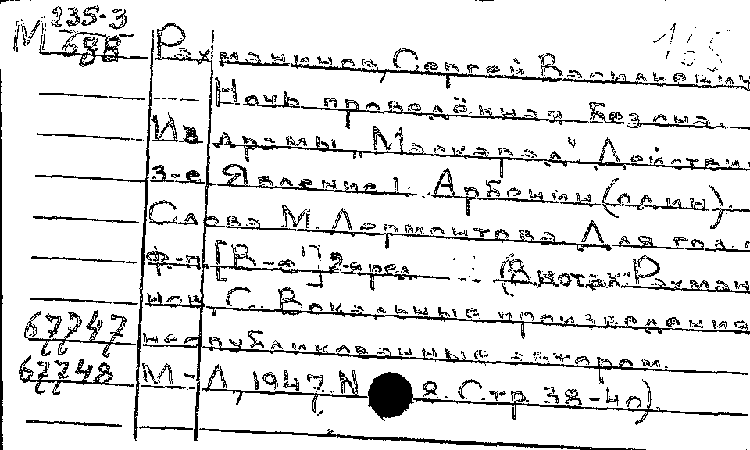 М 235-3/688
165
Рахманинов, Сергей Васильевич
Ночь проведённая без сна.
Из драмы „Маскарад" Действи
3-е Явление 1. Арбенин (один).
Слова М. Лермонтова Для гол. с
ф-п. [В-е"] 2-яред. (В нотах: Рахмани
нов, С. Вокальные произведения
67747 неопубликованные автором.
67748 М-Л, 1947, N 8. Стр 38-40).